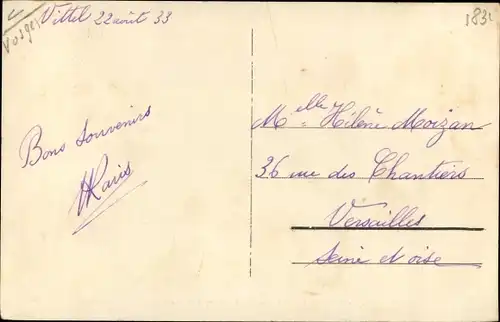 Vosges
Vittel 22 août 33
183
Bons souvenirs
Mlle Hélène Moizan
36 rue des Chantiers
Versailles
Seine et oise